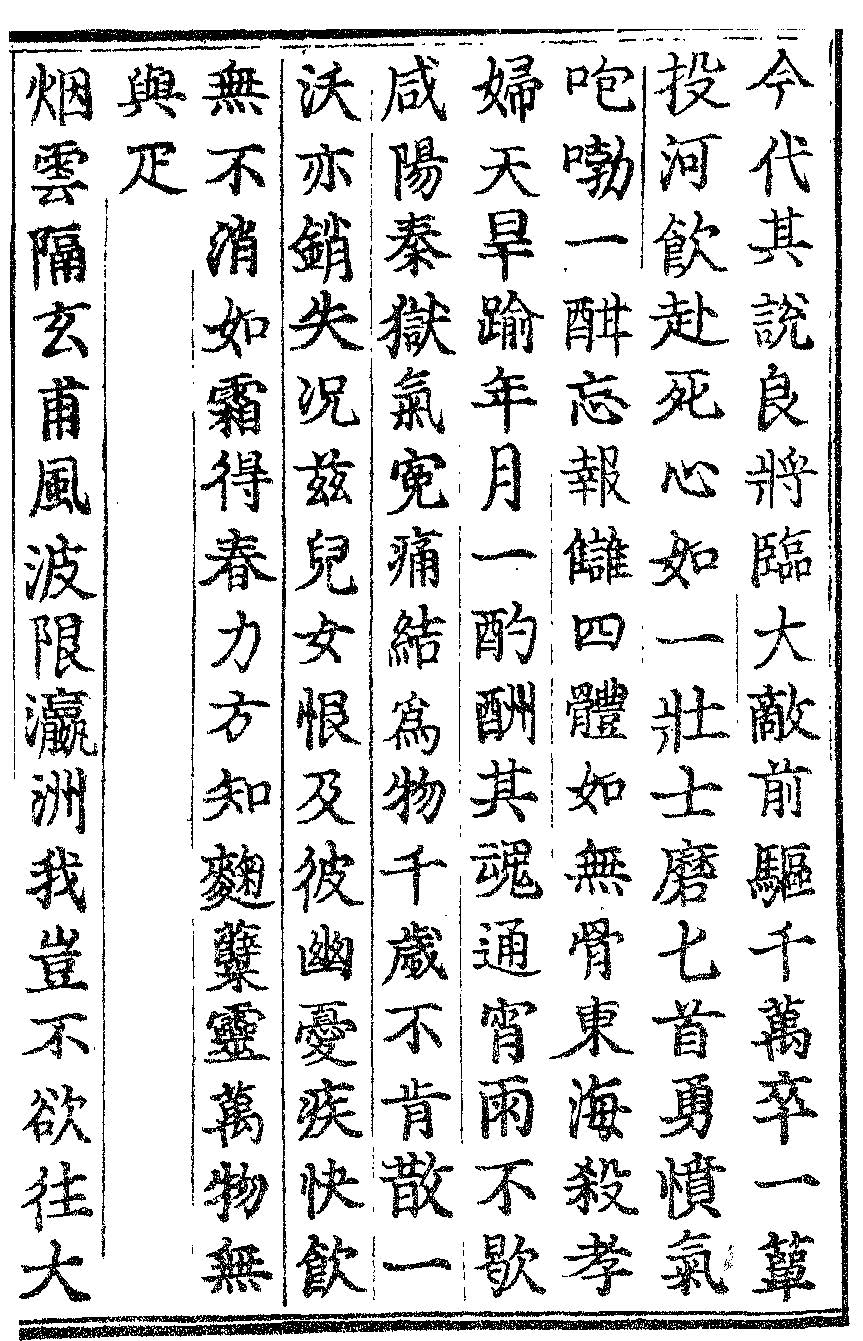 今代其說良將臨大敵前驅千萬卒一簞
投河飲赴死心如一壯士磨匕首勇憤氣
咆嘞一酣忘報讎四體如無骨東海殺孝
婦天旱踰年月一酌酬其魂通宵雨不歇
咸陽秦獄氣寃痛結爲物千歲不肯散一
沃亦銷失况茲兒女恨及彼幽憂疾快飲
無不消如霜得春力方知麴糵靈萬物無
與疋
烟雲隔玄甫風波限瀛洲我豈不欲往大